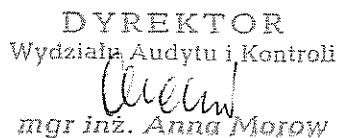 DYREKTOR
Wydziału Audytu i Kontroli
mgr inż. Anna Morow